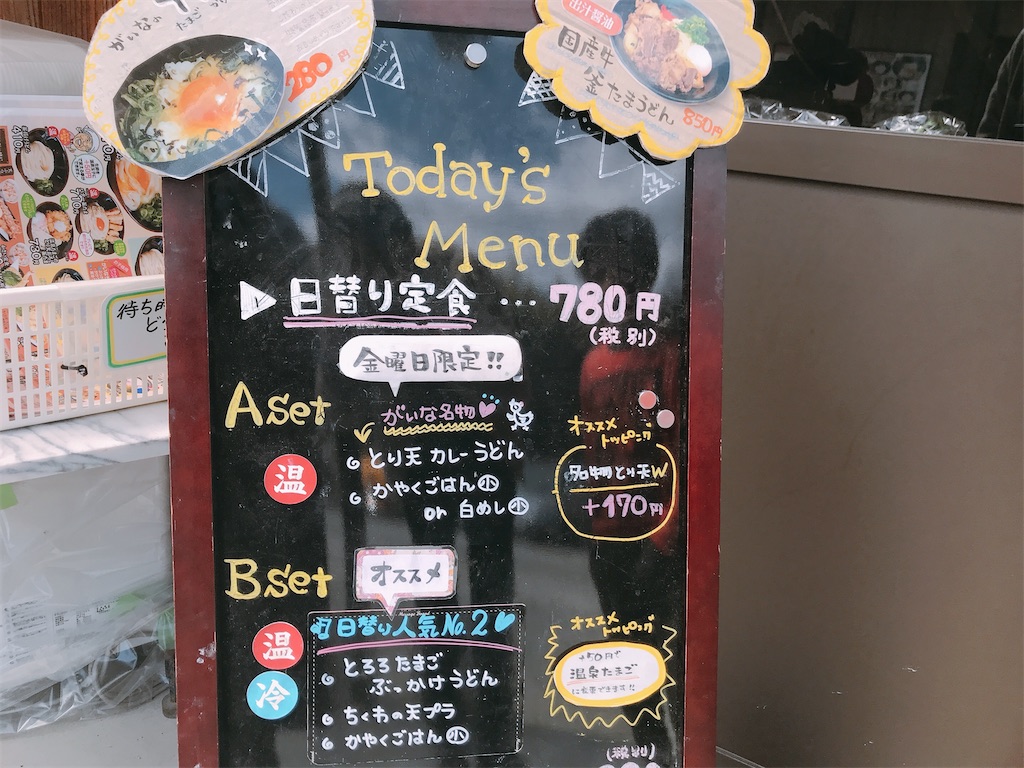 がいなの
たまご
280円
出汁醤油
国産牛
釜たまうどん
850円
Today's
Menu
日替り定食 … 780円
(税別)
金曜日限定!!
A set
がいな名物
温
とり天 カレーうどん
かやくごはん小
or 白めし小
オススメ
トッピング
名物とり天W
+170円
B set
オススメ
日替り人気No.2
温
冷
とろろたまご
ぶっかけうどん
ちくわの天プラ
かやくごはん小
オススメ
トッピング
+50円で
温泉たまご
に変更できます!!
(税別)
待ち時